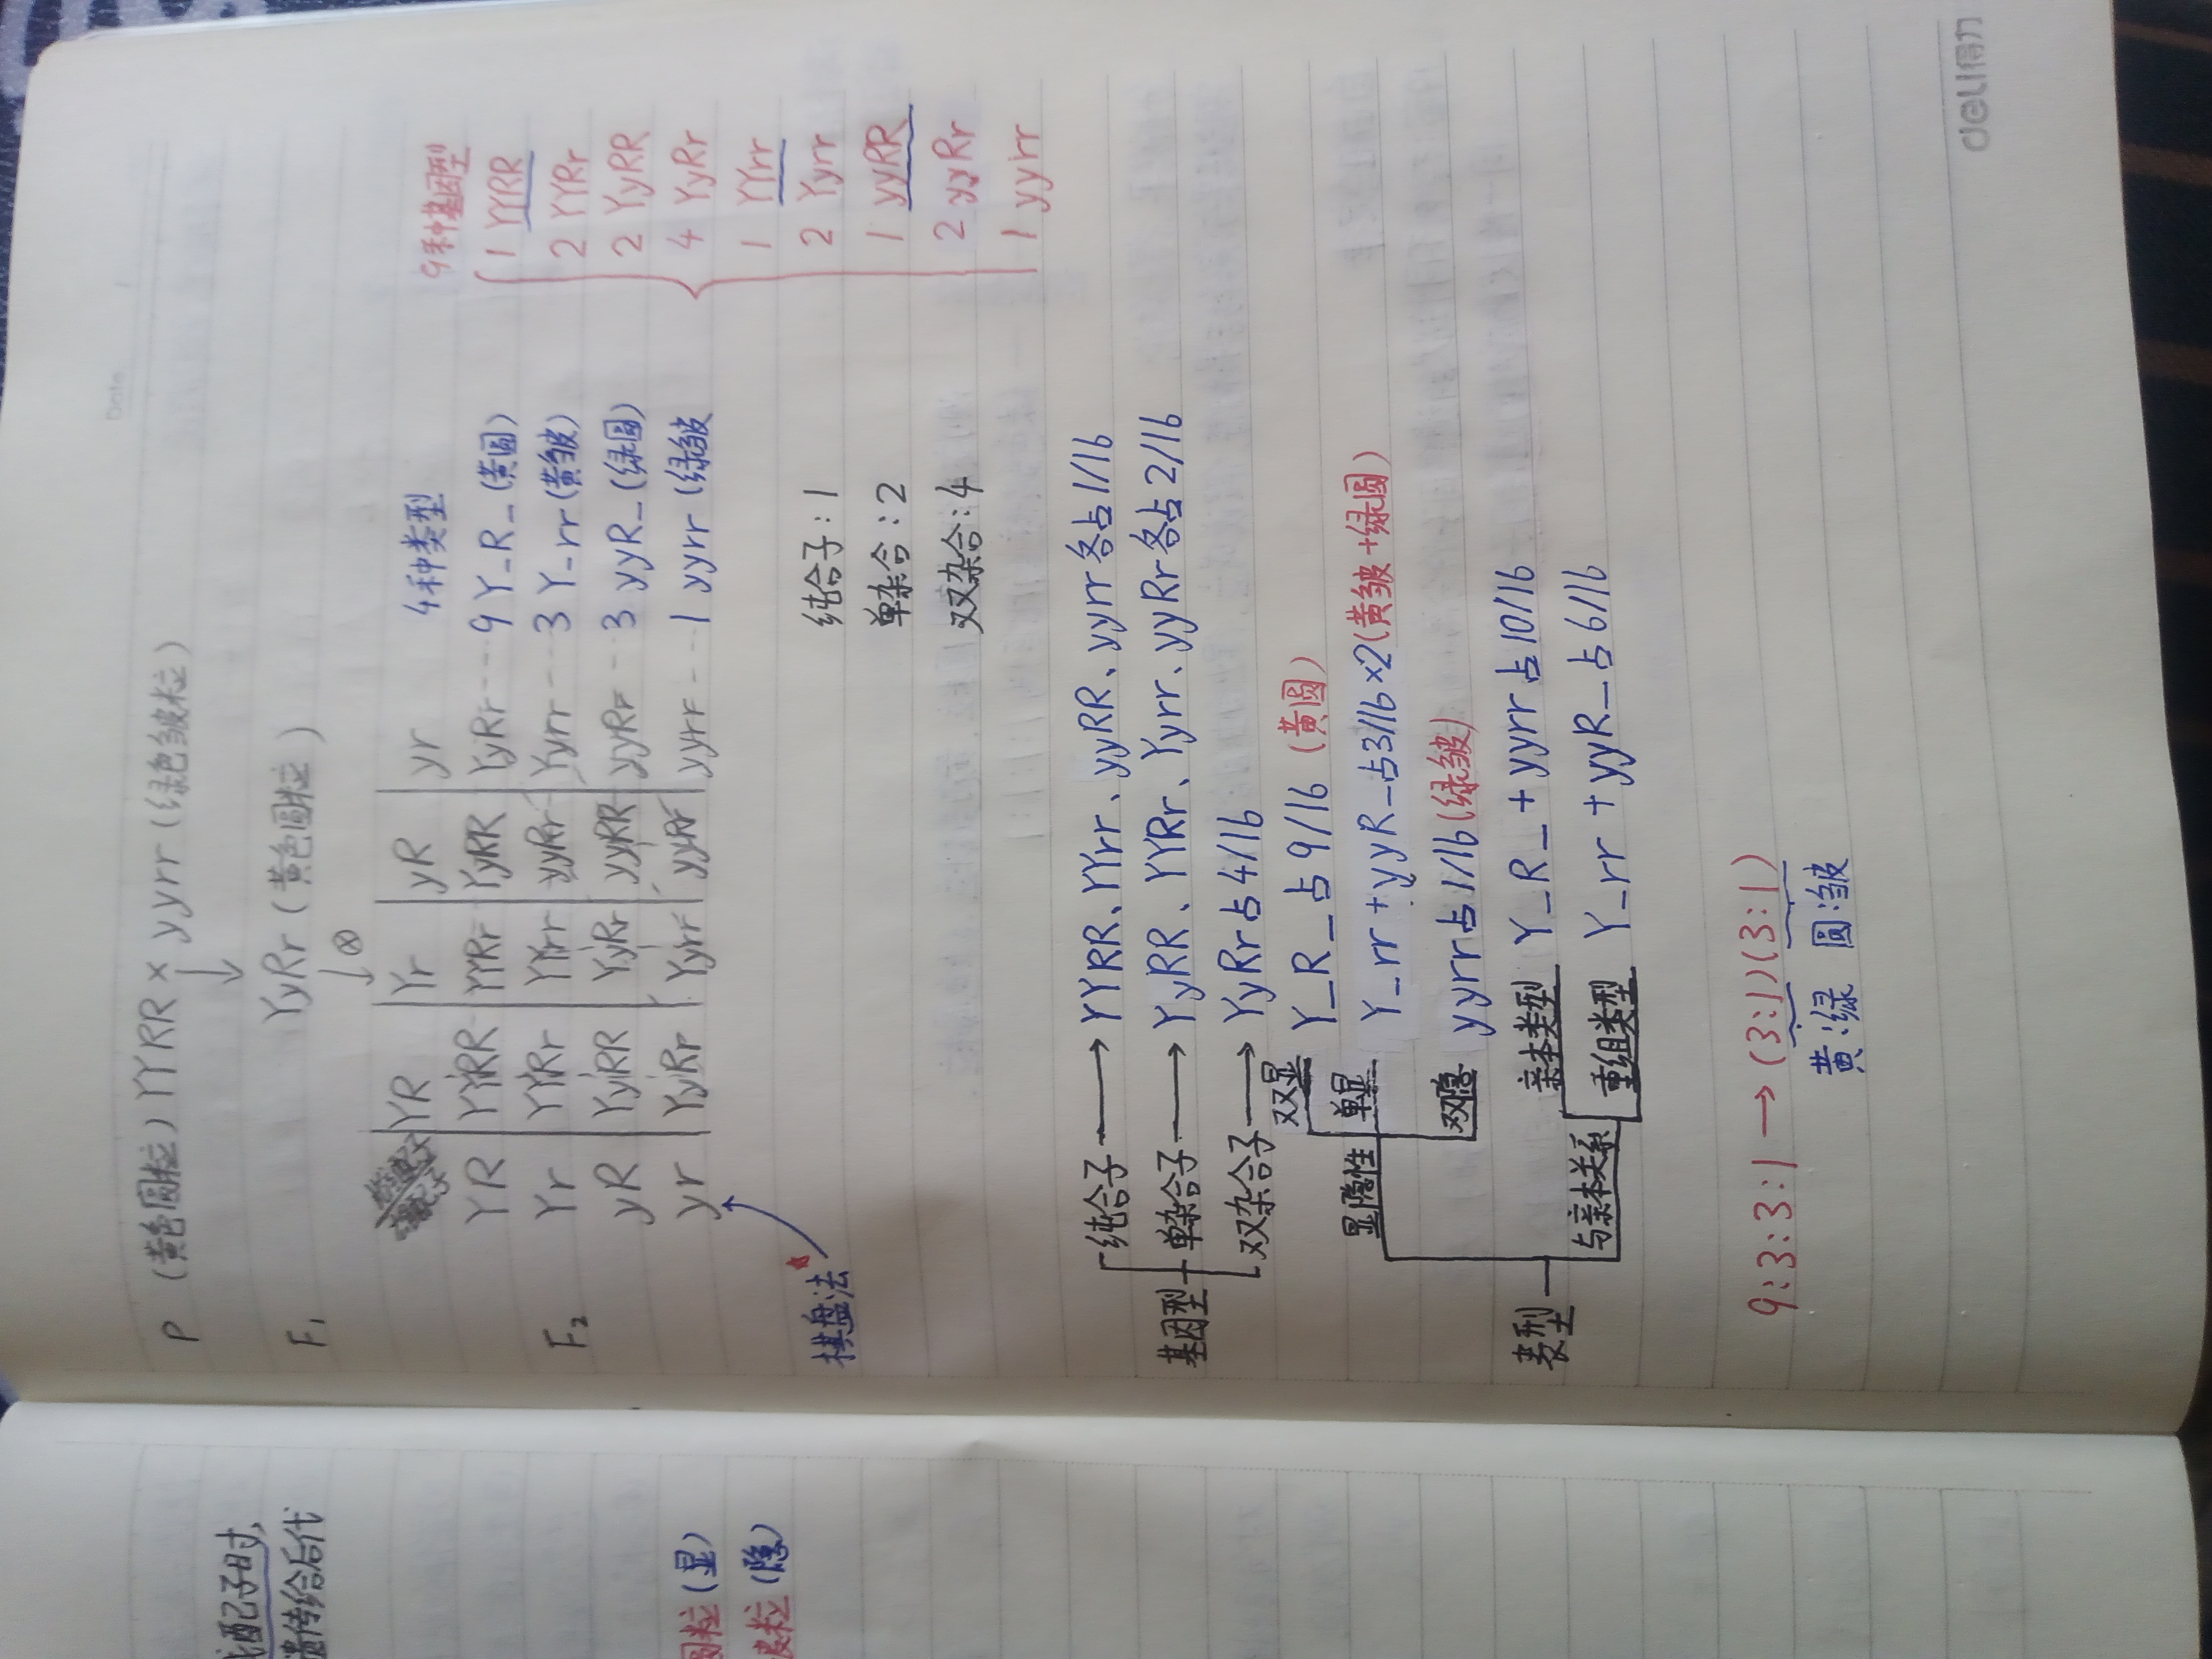 Date
P (黄色圆粒) YYRR × yyrr (绿色皱粒)
↓
F₁ YyRr (黄色圆粒)
↓⊗
YR Yr yR yr 4种类型 9种基因型
YR YYRR YYRr YyRR YyRr --- 9 Y_R_ (黄圆) 1 YYRR
Yr YYRr YYrr yyRr Yyrr --- 3 Y_rr (黄皱) 2 YYRr
F₂
yR YyRR YyRr yyRR yyRr -- 3 yyR_ (绿圆) 2 YyRR
yr YyRr Yyrr yyRr yyrr --- 1 yyrr (绿皱) 4 YyRr
1 YYrr
2 Yyrr
1 yyRR
2 yyRr
1 yyrr
棋盘法
纯合子:1
单杂合:2
双杂合:4
基因型
纯合子 → YYRR、YYrr、yyRR、yyrr各占1/16
单杂合子 → YyRR、YYRr、Yyrr、yyRr各占2/16
双杂合子 → YyRr占4/16
表型
显隐性
双显 Y_R_占9/16 (黄圆)
单显 Y_rr+yyR_占3/16×2(黄皱+绿圆)
双隐 yyrr占1/16(绿皱)
与亲本关系
亲本类型 Y_R_+yyrr占10/16
重组类型 Y_rr+yyR_占6/16
9:3:3:1 → (3:1)(3:1)
黄:绿 圆:皱
deli得力
配子时,
遗传给后代
圆粒(显)
皱粒(隐)